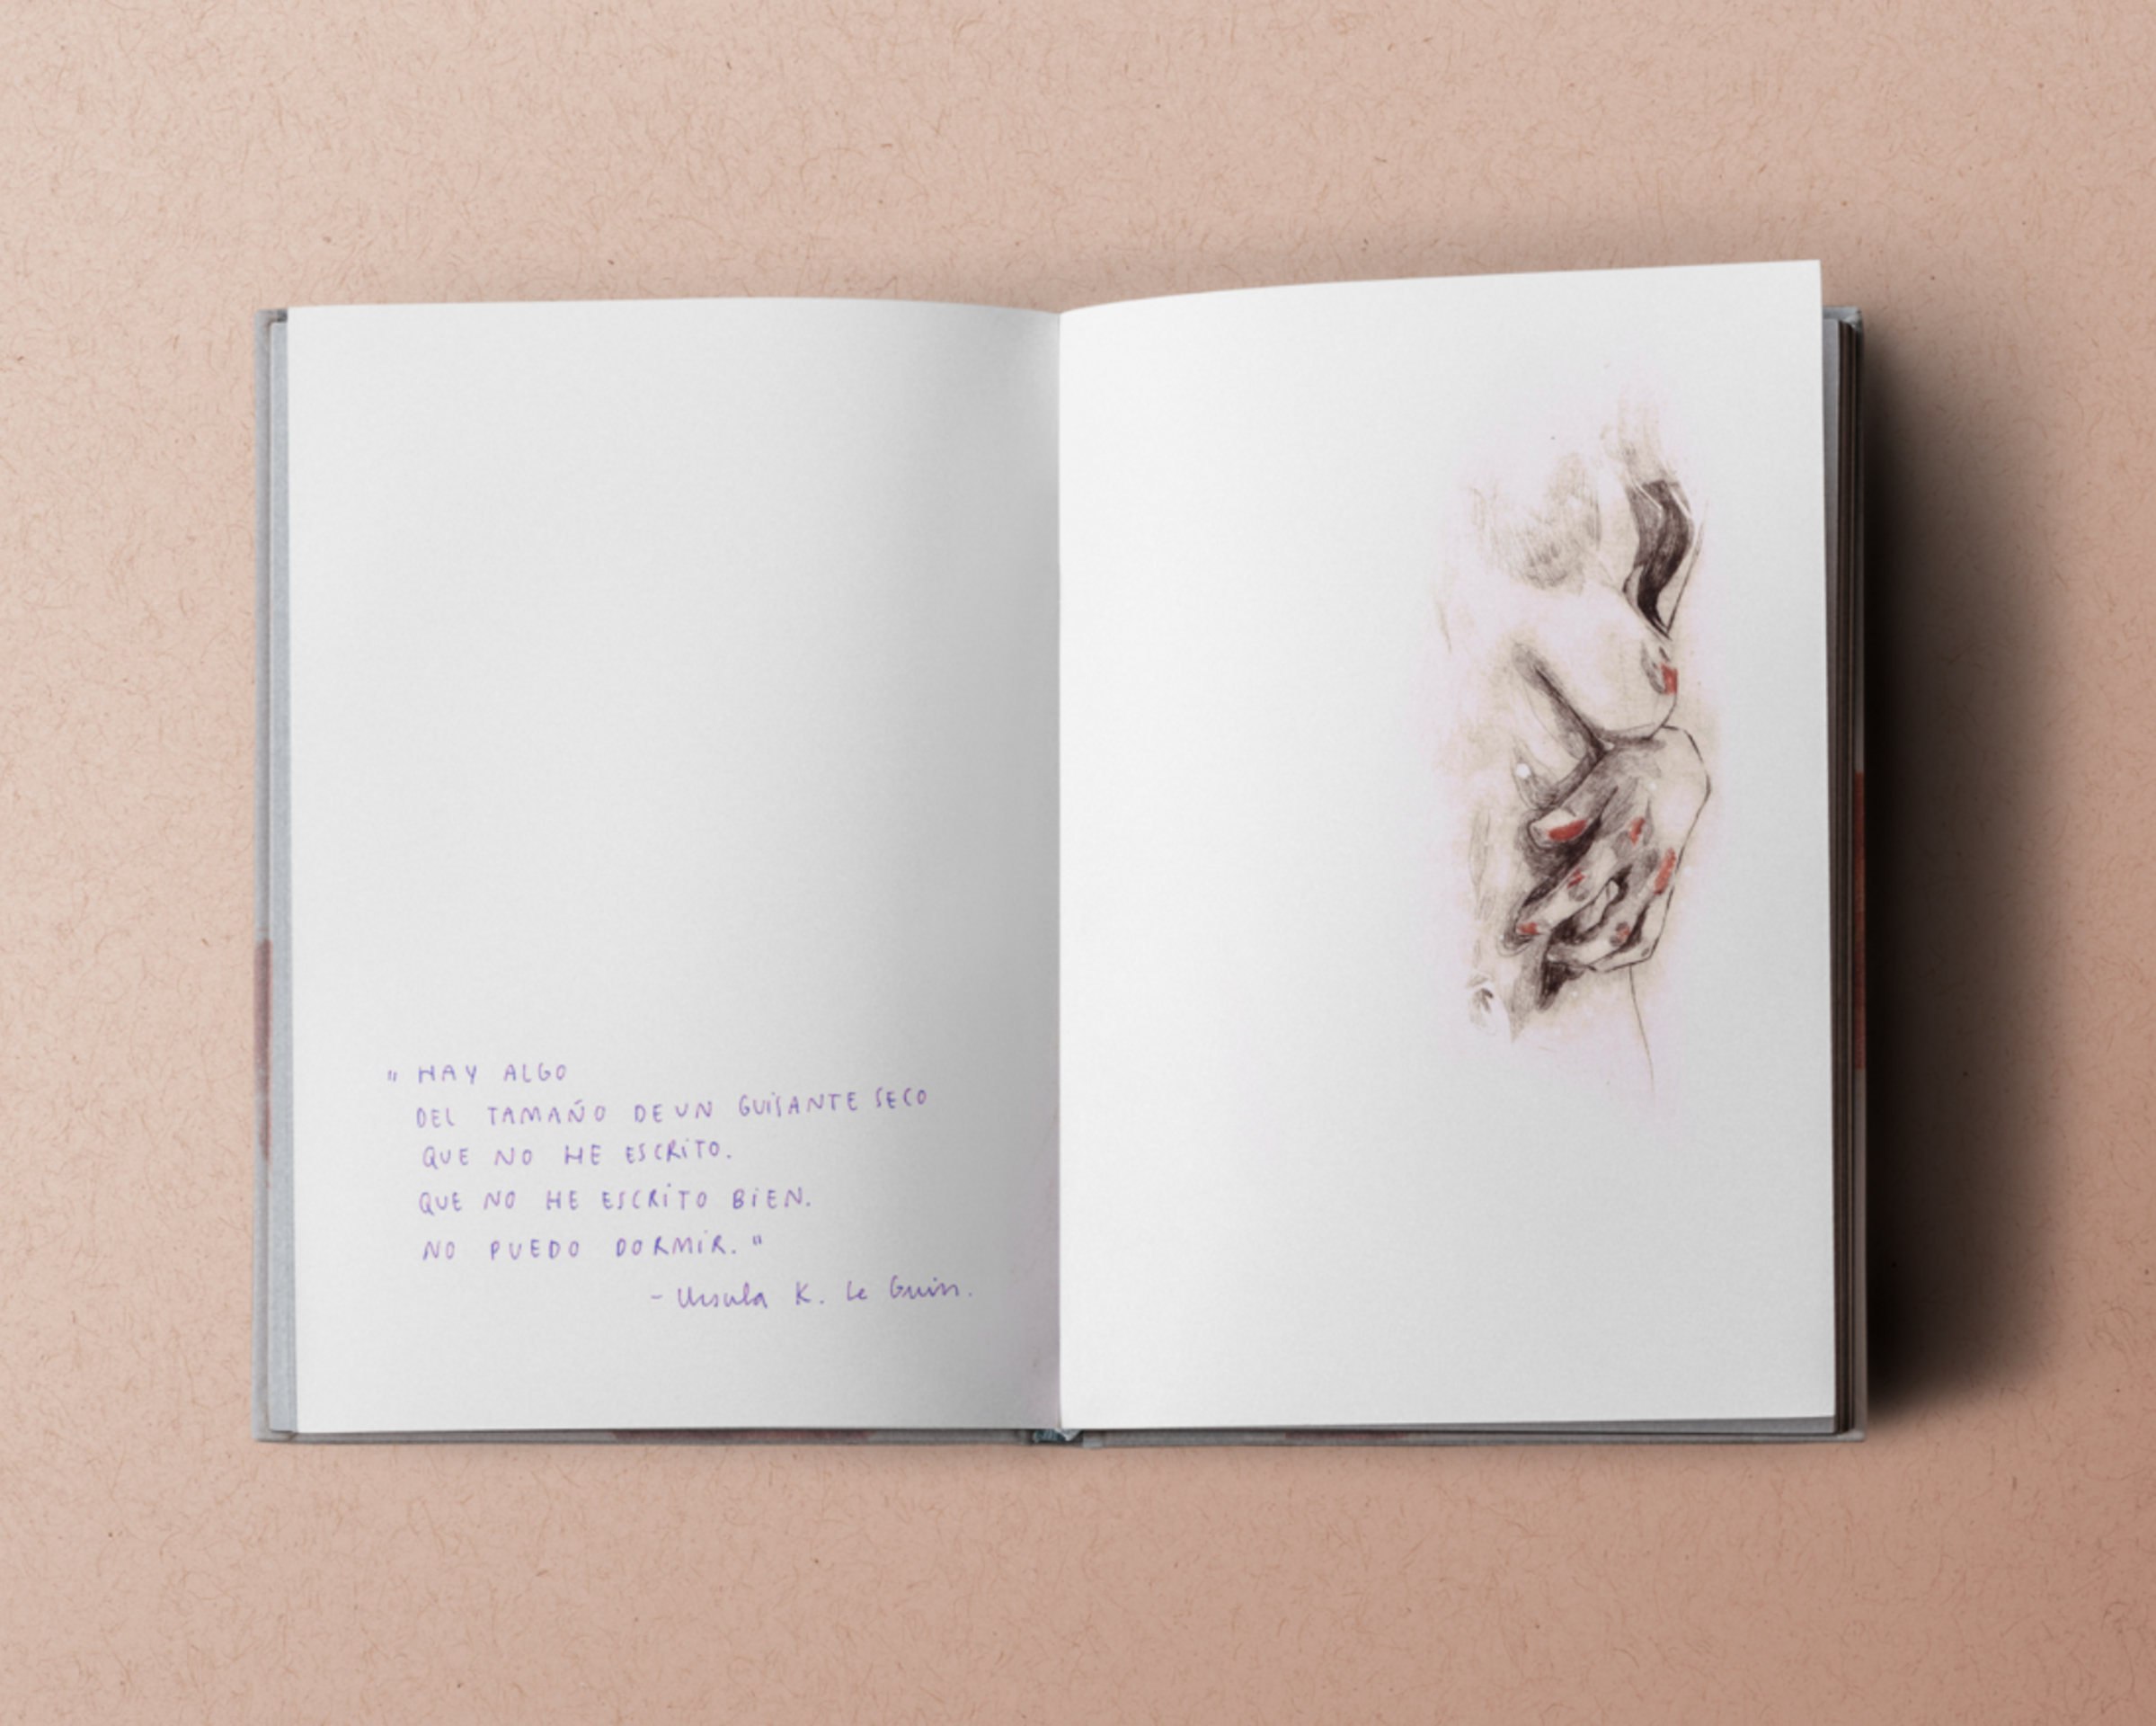 " HAY ALGO
DEL TAMAÑO DE UN GUISANTE SECO
QUE NO HE ESCRITO.
QUE NO HE ESCRITO BIEN.
NO PUEDO DORMIR. "
- Ursula K. Le Guin.